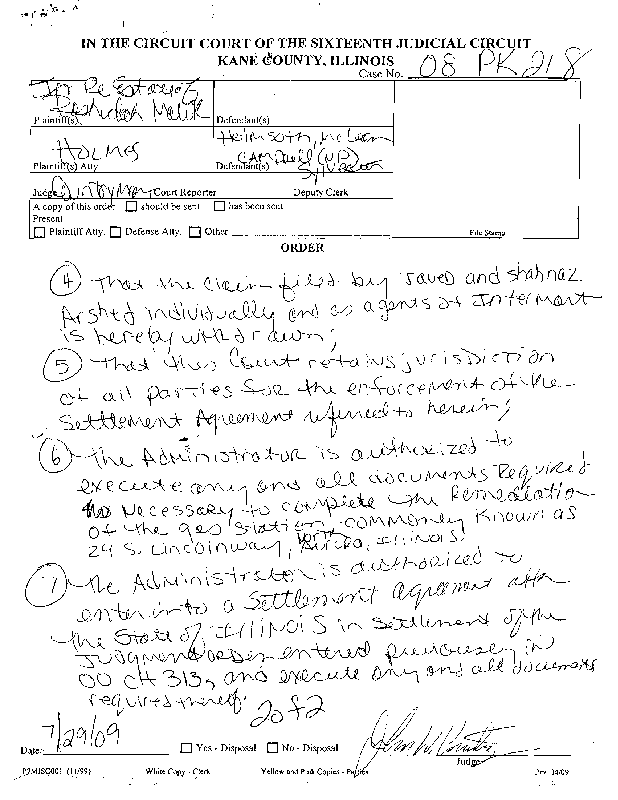 IN THE CIRCUIT COURT OF THE SIXTEENTH JUDICIAL CIRCUIT
KANE COUNTY, ILLINOIS
Case No. 08 PK 218
In Re Estate of
Reshidah Malik
Plaintiff(s)
Defendant(s)
Heimsoth, McLean
HOLMES
Campbell (VP)
Sylvester
Plaintiff(s) Atty
Defendant(s)
Judge
Court Reporter
Deputy Clerk
A copy of this order
should be sent
has been sent
Present
Plaintiff Atty.
Defense Atty.
Other
File Stamp
ORDER
(4) That the claim filed by Javed and Shahnaz
Arshed individually and as agents of Intermart
is hereby withdrawn;
(5) That this Court retains jurisdiction
of all parties for the enforcement of the
Settlement Agreement referred to herein;
(6) The Administrator is authorized to
execute any and all documents required
necessary to complete the Remediation
of the gas station commonly known as
24 S. Lincolnway, North Aurora, Illinois.
(7) The Administrator is authorized to
enter into a Settlement Agreement with
the State of Illinois in settlement of the
Judgment order entered previously in
00 CH 313, and execute any and all documents
required hereof.
2 of 2
Date: 7/29/09
Yes - Disposal
No - Disposal
Judge
White Copy - Clerk
Yellow and Pink Copies - Parties